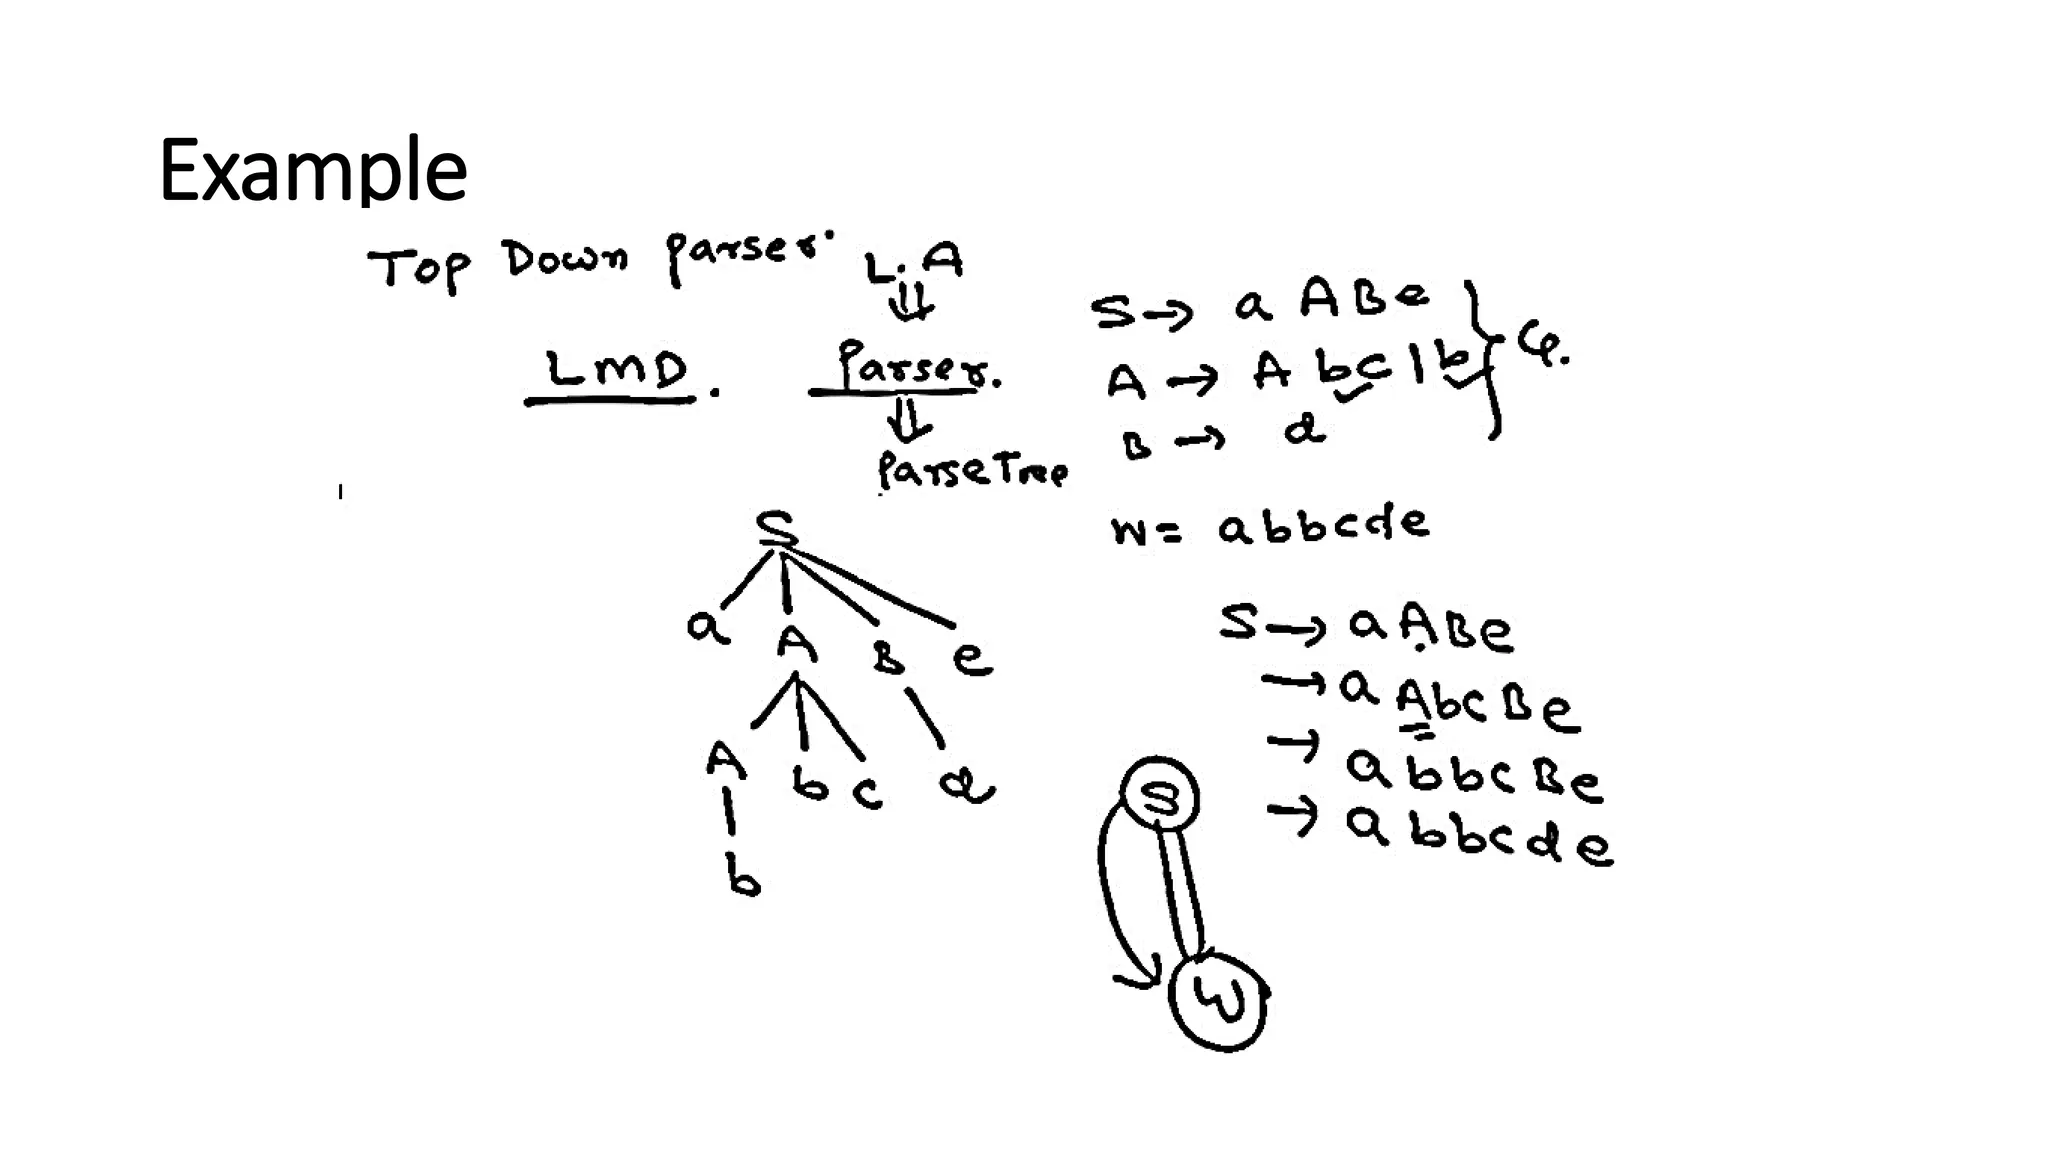 Example
Top Down Parser.
L.A
⇓
LMD.
Parser.
⇓
ParseTree
S → a A B e
A → A b c | b
B → d
} G.
w = abbcde
S
a A B e
A b c d
b
S → a A B e
→ a A b c B e
→ a b b c B e
→ a b b c d e
S
W